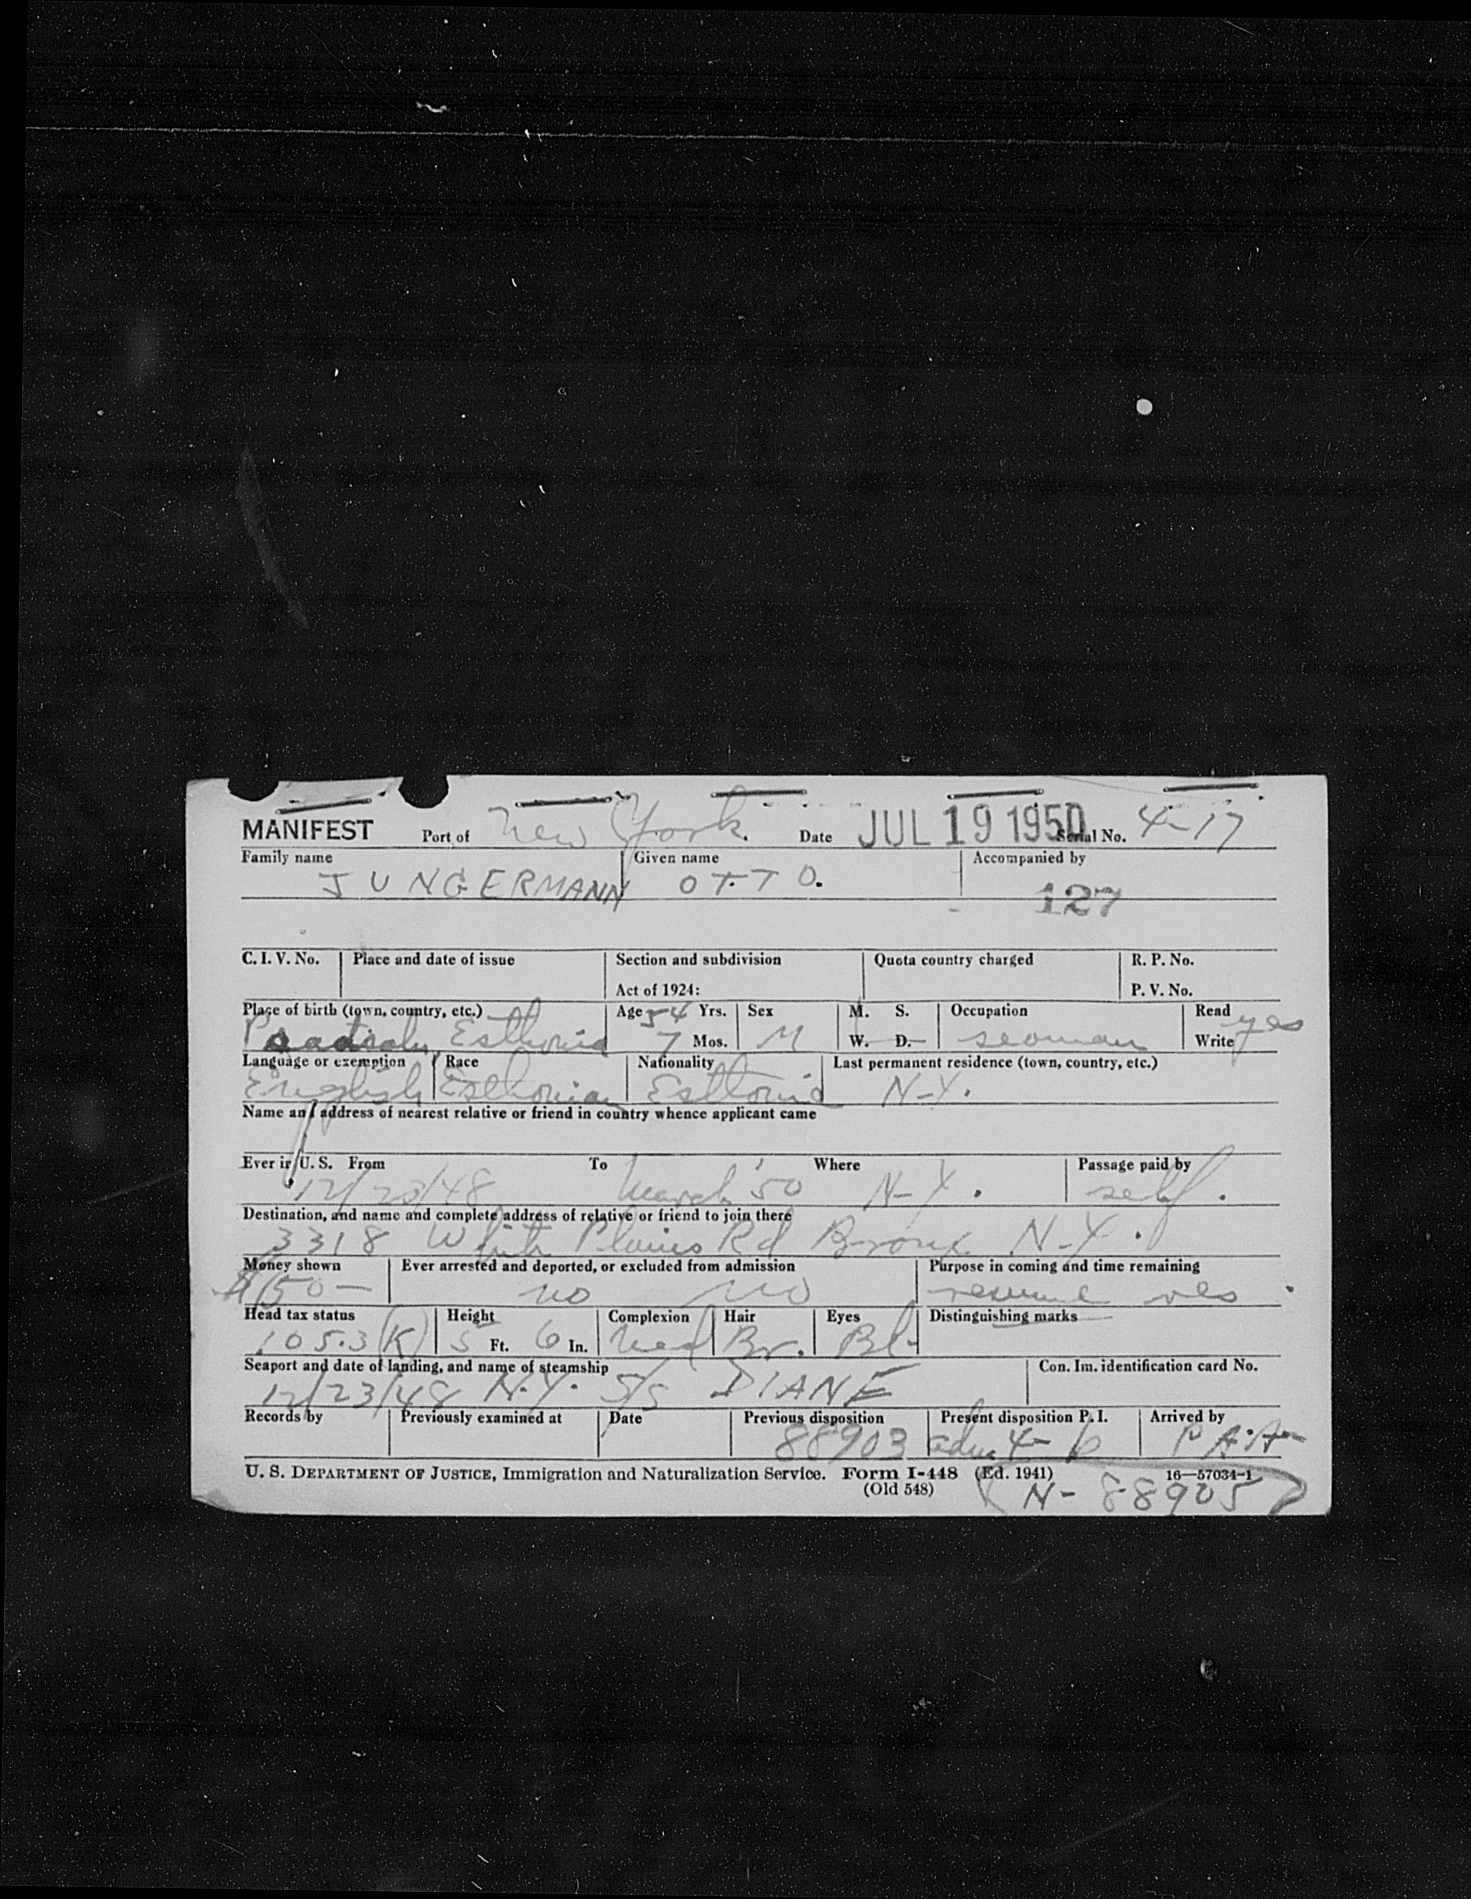 MANIFEST Port of New York. Date JUL 19 1950 Serial No. 4-17
Family name Given name Accompanied by
JUNGERMANN OTTO.
127
C. I. V. No. Place and date of issue Section and subdivision Quota country charged R. P. No.
Act of 1924: P. V. No.
Place of birth (town, country, etc.) Age 54 Yrs. Sex M. S. Occupation Read yes
Esthonia 7 Mos. M W. D. seaman Write
Language or exemption Race Nationality Last permanent residence (town, country, etc.)
English Esthonian Esthonia N-Y.
Name and address of nearest relative or friend in country whence applicant came
Ever in U. S. From To Where Passage paid by
12/23/48 March '50 N-Y. self.
Destination, and name and complete address of relative or friend to join there
3318 White Plains Rd Bronx N-Y.
Money shown Ever arrested and deported, or excluded from admission Purpose in coming and time remaining
$150- no no resume res
Head tax status Height Complexion Hair Eyes Distinguishing marks
105.3 (K) 5 Ft. 6 In. Med Br. Bl-
Seaport and date of landing, and name of steamship Con. Im. identification card No.
12/23/48 N.Y. S/S DIANE
Records by Previously examined at Date Previous disposition Present disposition P. I. Arrived by
88903 adm 4-6 P A-A-
U. S. DEPARTMENT OF JUSTICE, Immigration and Naturalization Service. Form I-448 (Ed. 1941) 16—57034-1
(Old 548) N-88905